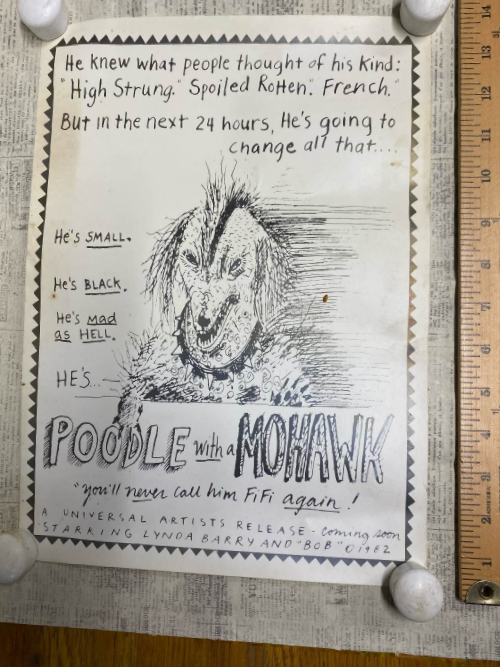 He knew what people thought of his kind:
"High Strung." "Spoiled Rotten." "French."
But in the next 24 hours, He's going to
change all that....
He's SMALL.
He's BLACK.
He's mad
as HELL.
HE'S...
POODLE with a MOHAWK
"you'll never call him FiFi again!
A UNIVERSAL ARTISTS RELEASE - coming soon
STARRING LYNDA BARRY AND "BOB" © 1982
14
13
12
11
10
9
8
7
6
5
4
3
2
1